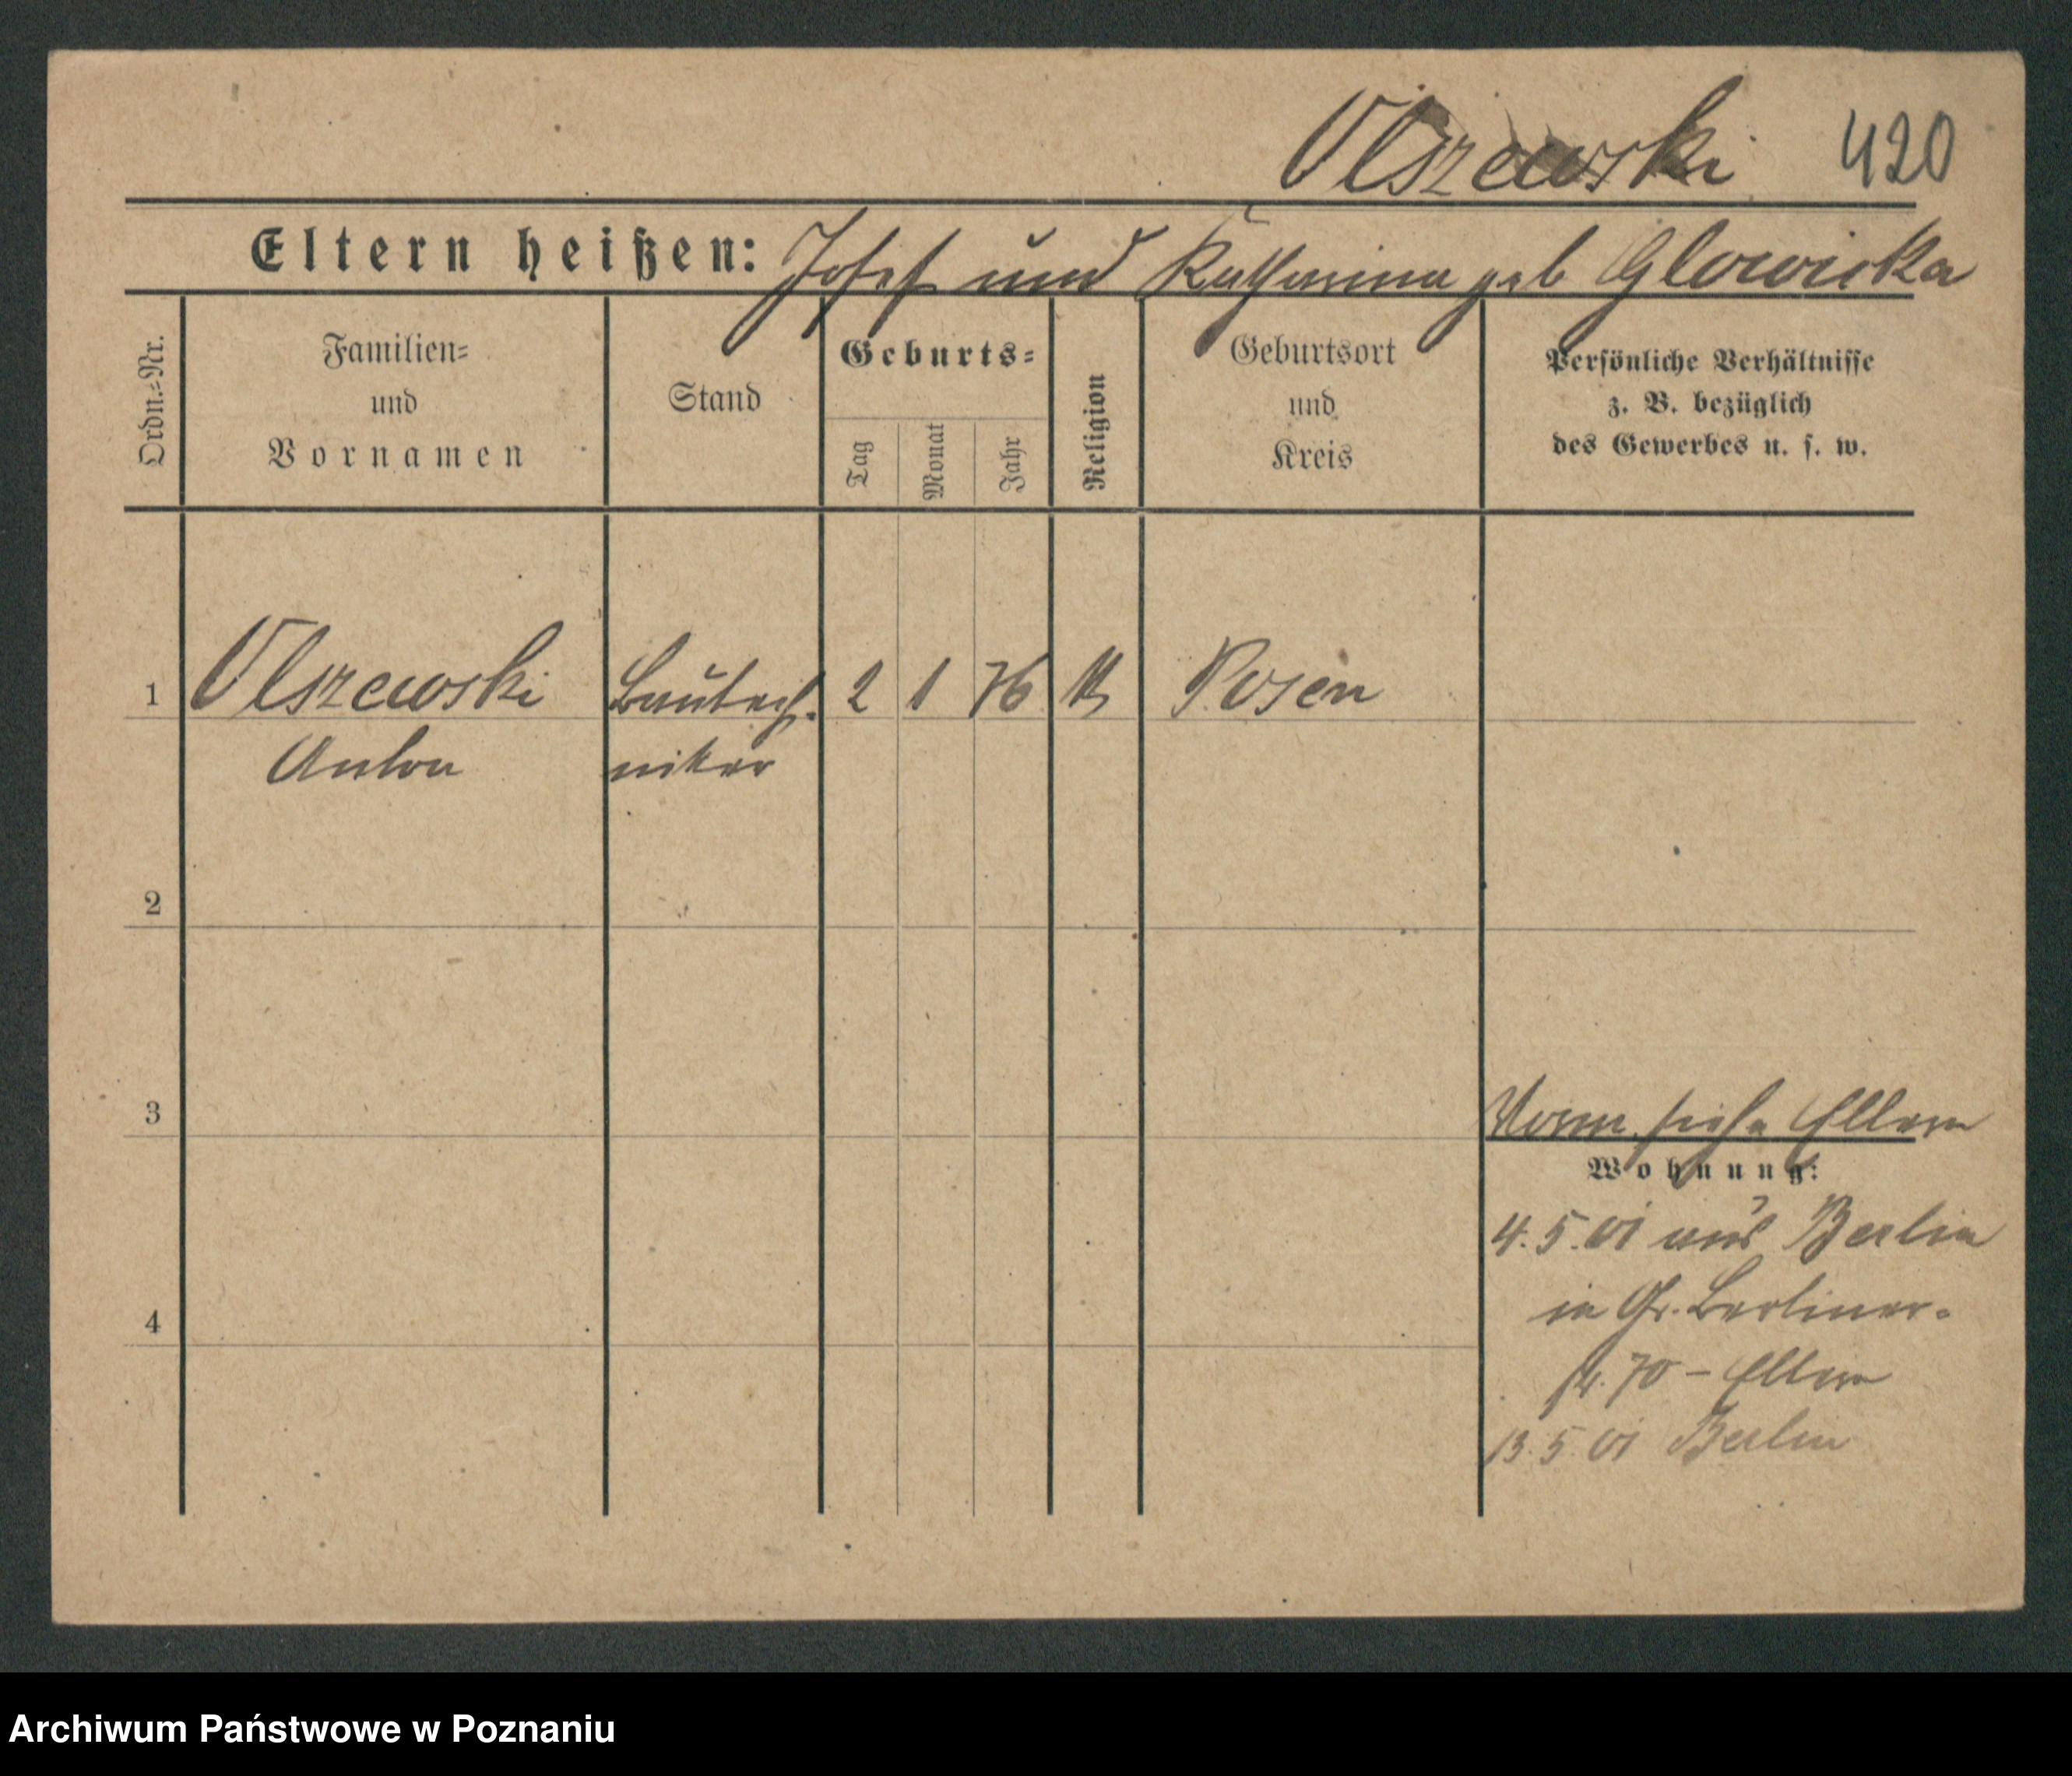 Olszewski 420
Eltern heißen: Josef und Katharina geb Glowicka
Ordn.-Nr.
Familien-
und
Vornamen
Stand
Geburts-
Tag
Monat
Jahr
Religion
Geburtsort
und
Kreis
Persönliche Verhältnisse
z. B. bezüglich
des Gewerbes u. s. w.
1 Olszewski Bautech- 2 1 76 K Posen
Anton niker
2
3
Vorm. siehe Eltern
Wohnung:
4.5.01 aus Berlin
in Gr. Berliner-
4
str. 70 - Eltern
13.5.01 Berlin
Archiwum Państwowe w Poznaniu